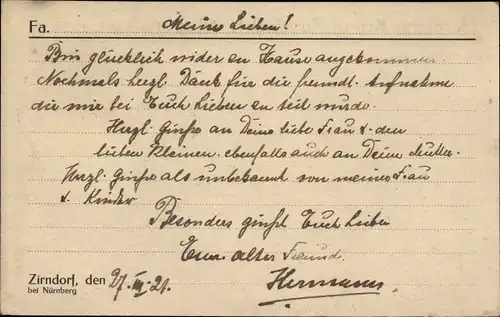 Fa. Meine Lieben!
Bin glücklich wider zu Hause angekommen
Nochmals herzl. Dank für die freundl. Aufnahme
die mir bei Euch Lieben zu teil wurde.
Herzl. Grüße an Deine liebe Frau & den
lieben Kleinen. ebenfalls auch an Deine Mutter.
Herzl. Grüße als unbekannt von meiner Frau
& Kinder
Besonders grüßt Euch Liebe
Euer alter Freund.
Zirndorf, den 27. III. 21.
bei Nürnberg
Hermann